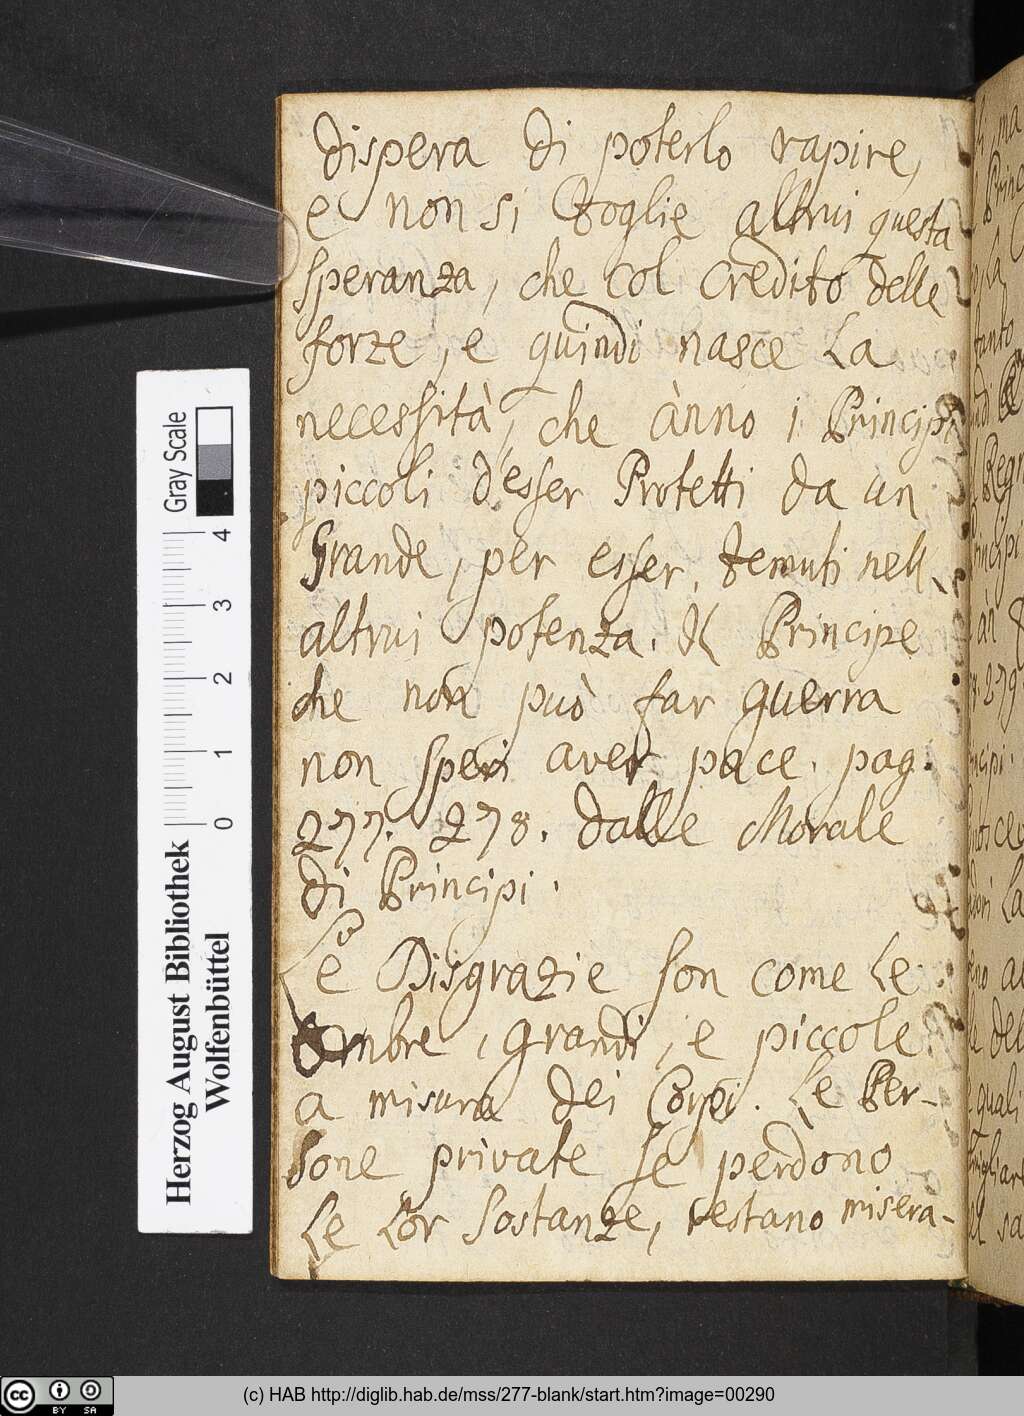 dispera di poterlo rapire,
e non si toglie altrui questa
speranza, che col credito delle
forze, e quindi nasce la
necessità, che ànno i Principi
piccoli d'esser Protetti da un
Grande, per esser temuti nell
altrui potenza. Il Principe
che non può far guerra
non speri aver pace. pag.
277. 278. dalle Morale
di Principi.
Le Disgrazie son come le
ombre, grandi, e piccole
a misura dei Corpi. Le Per-
sone private se perdono
le lor sostanze, restano misera-
Gray Scale
4
3
2
1
0
Herzog August Bibliothek
Wolfenbüttel
(c) HAB http://diglib.hab.de/mss/277-blank/start.htm?image=00290
cc BY SA